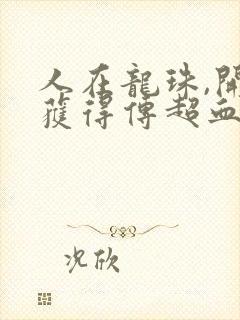 人在龍珠,開
獲得傳超血
况欣